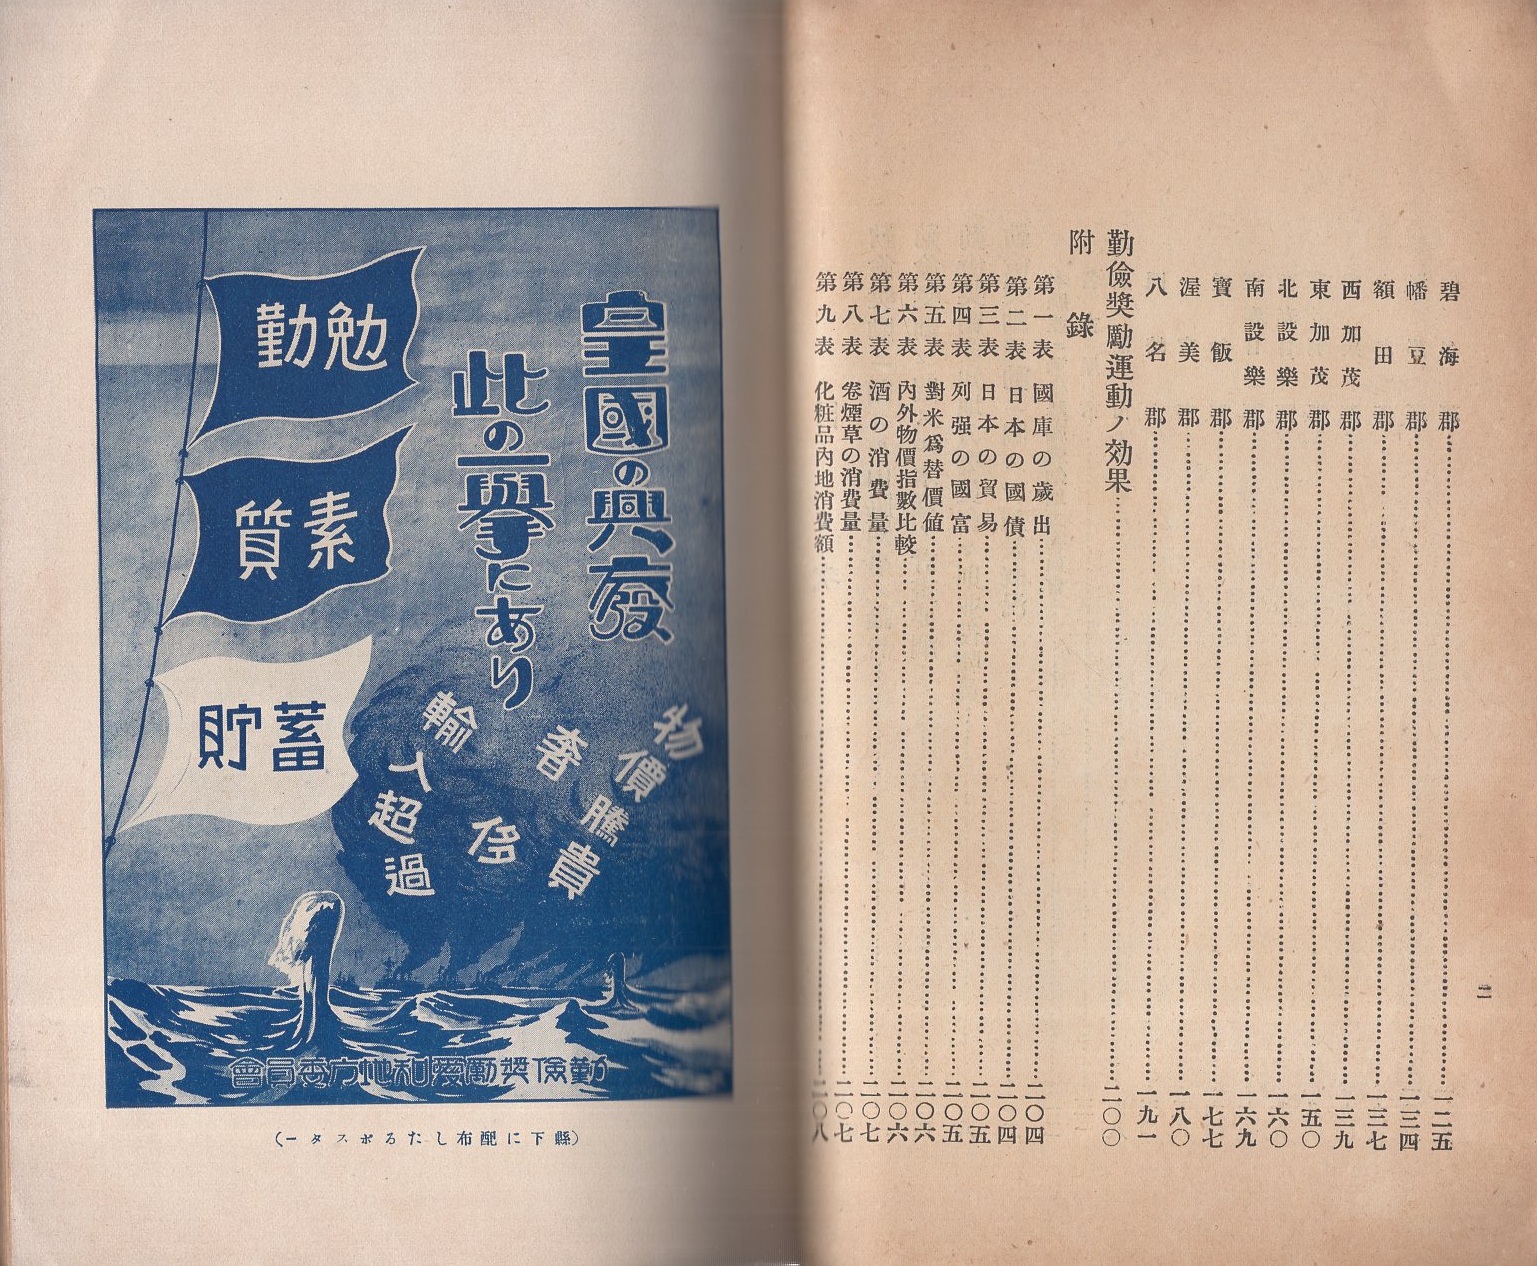 二
碧海郡 一二五
幡豆郡 一三四
額田郡 一三七
西加茂郡 一三九
東加茂郡 一五〇
北設樂郡 一六〇
南設樂郡 一六九
寶飯郡 一七七
渥美郡 一八〇
八名郡 一九一
勤儉奬勵運動ノ効果 二〇〇
附錄
第一表 國庫の歲出 二〇四
第二表 日本の國債 二〇四
第三表 日本の貿易 二〇五
第四表 列强の國富 二〇五
第五表 對米爲替價値 二〇六
第六表 內外物價指數比較 二〇六
第七表 酒の消費量 二〇七
第八表 卷煙草の消費量 二〇七
第九表 化粧品內地消費額 二〇八
皇國の興廢
此の一擧にあり
勤勉
質素
貯蓄
物價騰貴
奢侈
輸入超過
勤儉奬勵愛知地方委員會
(縣下に配布したるポスター)